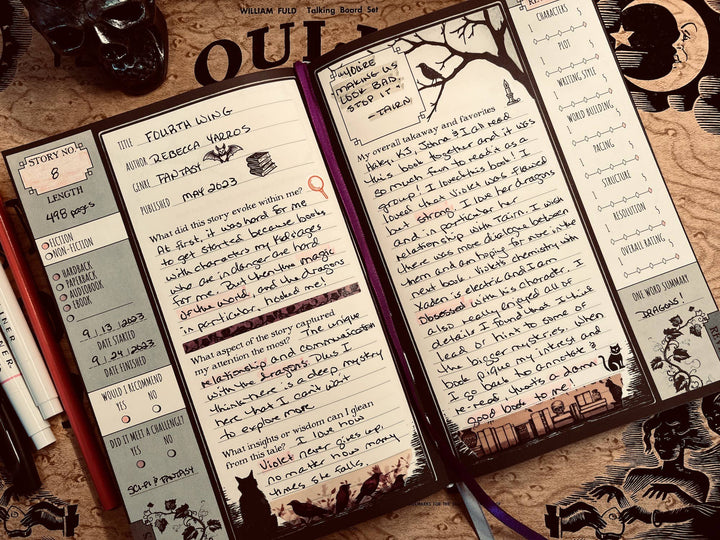 WILLIAM FULD Talking Board Set
STORY NO.
8
LENGTH
498 pages
FICTION
NON-FICTION
HARDBACK
PAPERBACK
AUDIOBOOK
EBOOK
9 / 13 / 2023
DATE STARTED
9 / 24 / 2023
DATE FINISHED
WOULD I RECOMMEND
YES NO
DID IT MEET A CHALLENGE?
YES NO
SCI-FI & FANTASY
TITLE FOURTH WING
AUTHOR REBECCA YARROS
GENRE FANTASY
PUBLISHED MAY 2023
What did this story evoke within me?
At first, it was hard for me
to get started because books
with characters my kid's ages
who are in danger are hard
for me. But when the magic
of the world, and the dragons
in particular, hooked me!
What aspect of the story captured
my attention the most? The unique
relationship and communication
with the dragons. Plus I
think there is a deep mystery
here that I can't wait
to explore more
What insights or wisdom can I glean
from this tale? I love how
Violet never gives up,
no matter how many
times she falls.
"YOU'RE
MAKING US
LOOK BAD.
STOP IT."
-TAIRN
My overall takeaway and favorites
& I all read
this book together and it was
so much fun to read it as a
group! I loved this book! I
loved that Violet was flawed
but strong. I love her dragons
and in particular her
relationship with Tairn. I wish
there was more dialogue between
them and am hoping for more in the
next book. Violet's chemistry with
Xaden is electric and I am
obsessed with his character. I
also really enjoyed all of
details I found that I think
lead or hint to some of
the bigger mysteries. When
a book pique my interest and
I go back to annotate &
re-read that's a damn
good book to me!
CHARACTERS
PLOT
WRITING STYLE
WORLD BUILDING
PACING
STRUCTURE
RESOLUTION
OVERALL RATING
ONE WORD SUMMARY
DRAGONS!